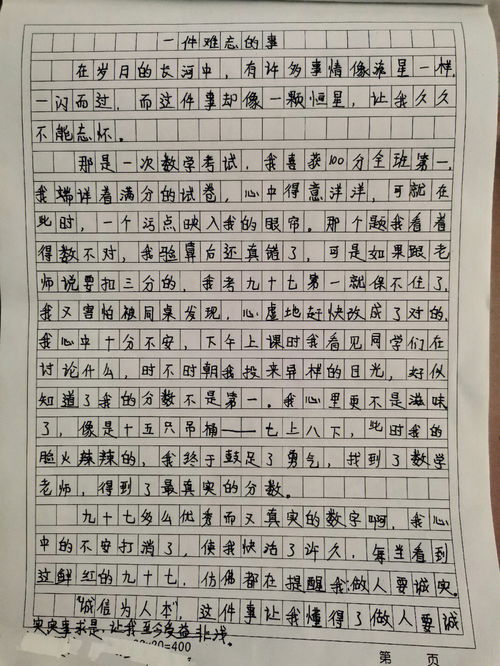 一件难忘的事
在岁月的长河中，有许多事情像流星一样，
一闪而过，而这件事却像一颗恒星，让我久久
不能忘怀。
那是一次数学考试，我喜获100分全班第一，
我端详着满分的试卷，心中得意洋洋，可就在
此时，一个污点映入我的眼帘。那个题我看着
得数不对，我验算后还真错了，可是如果跟老
师说要扣三分的，我考九十七第一就保不住了，
我又害怕被同桌发现，心虚地赶快改成了对的。
我心中十分不安，下午上课时我看见同学们在
讨论什么，时不时朝我投来异样的目光，好似
知道了我的分数不是第一。我心里更不是滋味
了，像是十五只吊桶——七上八下，此时我的
脸火辣辣的，我终于鼓足了勇气，找到了数学
老师，得到了最真实的分数。
九十七多么优秀而又真实的数字啊，我心
中的不安打消了，使我快活了许久，每当看到
这鲜红的九十七，仿佛都在提醒我：做人要诚实。
“诚信为人本”，这件事让我懂得了做人要诚
实实事求是，让我至今受益非浅。
20=400
第 页